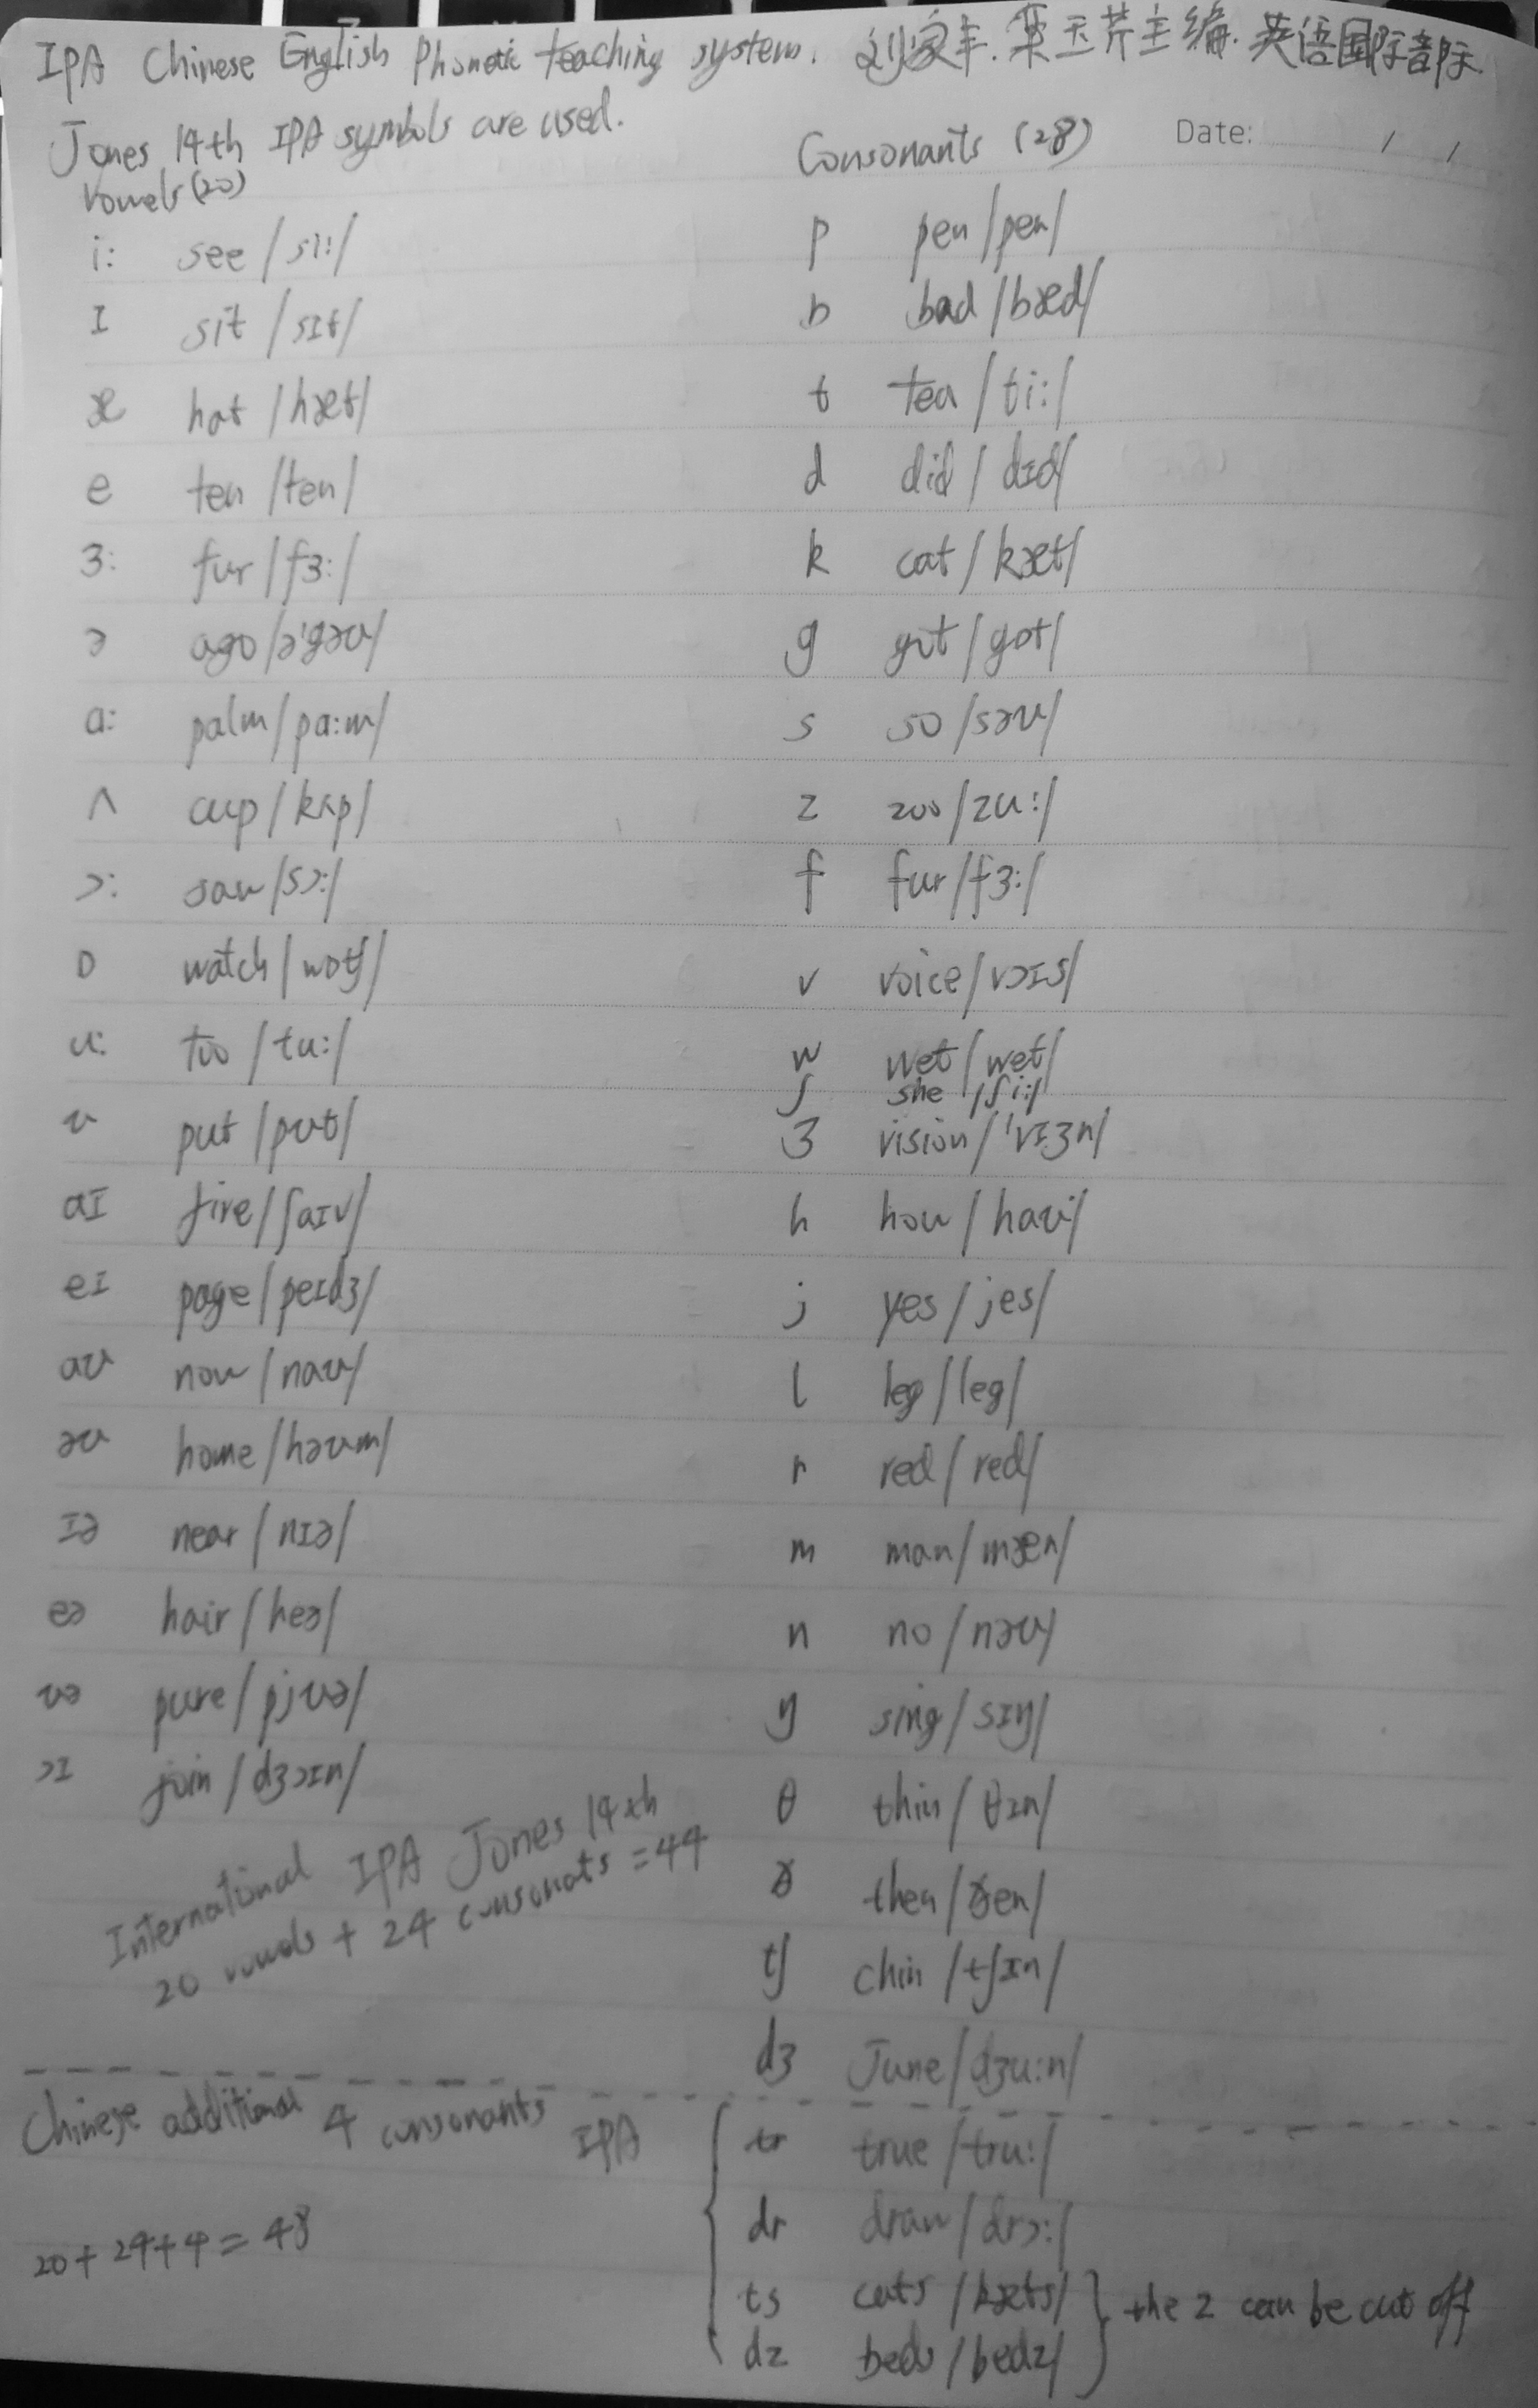 IPA Chinese English Phonetic teaching system. 刘家丰.栗玉芹主编.英语国际音际.
Jones 14th IPA symbols are used.
Vowels (20)
i: see /si:/
ɪ sit /sɪt/
æ hat /hæt/
e ten /ten/
ɜ: fur /fɜ:/
ə ago /ə'gəʊ/
ɑ: palm /pɑ:m/
ʌ cup /kʌp/
ɔ: saw /sɔ:/
ɒ watch /wɒtʃ/
u: too /tu:/
ʊ put /pʊt/
aɪ five /faɪv/
eɪ page /peɪdʒ/
aʊ now /naʊ/
əʊ home /həʊm/
ɪə near /nɪə/
eə hair /heə/
ʊə pure /pjʊə/
ɔɪ join /dʒɔɪn/
International IPA Jones 14th
20 vowels + 24 consonats = 44
Consonants (28)
Date: / /
p pen /pen/
b bad /bæd/
t tea /ti:/
d did /dɪd/
k cat /kæt/
g got /gɒt/
s so /səʊ/
z zoo /zu:/
f fur /fɜ:/
v voice /vɔɪs/
w wet /wet/
ʃ she /ʃi:/
ʒ vision /'vɪʒn/
h how /haʊ/
j yes /jes/
l leg /leg/
r red /red/
m man /mæn/
n no /nəʊ/
ŋ sing /sɪŋ/
θ thin /θɪn/
ð then /ðen/
tʃ chin /tʃɪn/
dʒ June /dʒu:n/
Chinese additional 4 consonants IPA
20+24+4=48
tr true /tru:/
dr draw /drɔ:/
ts cats /kæts/
dz beds /bedz/
the 2 can be cut off